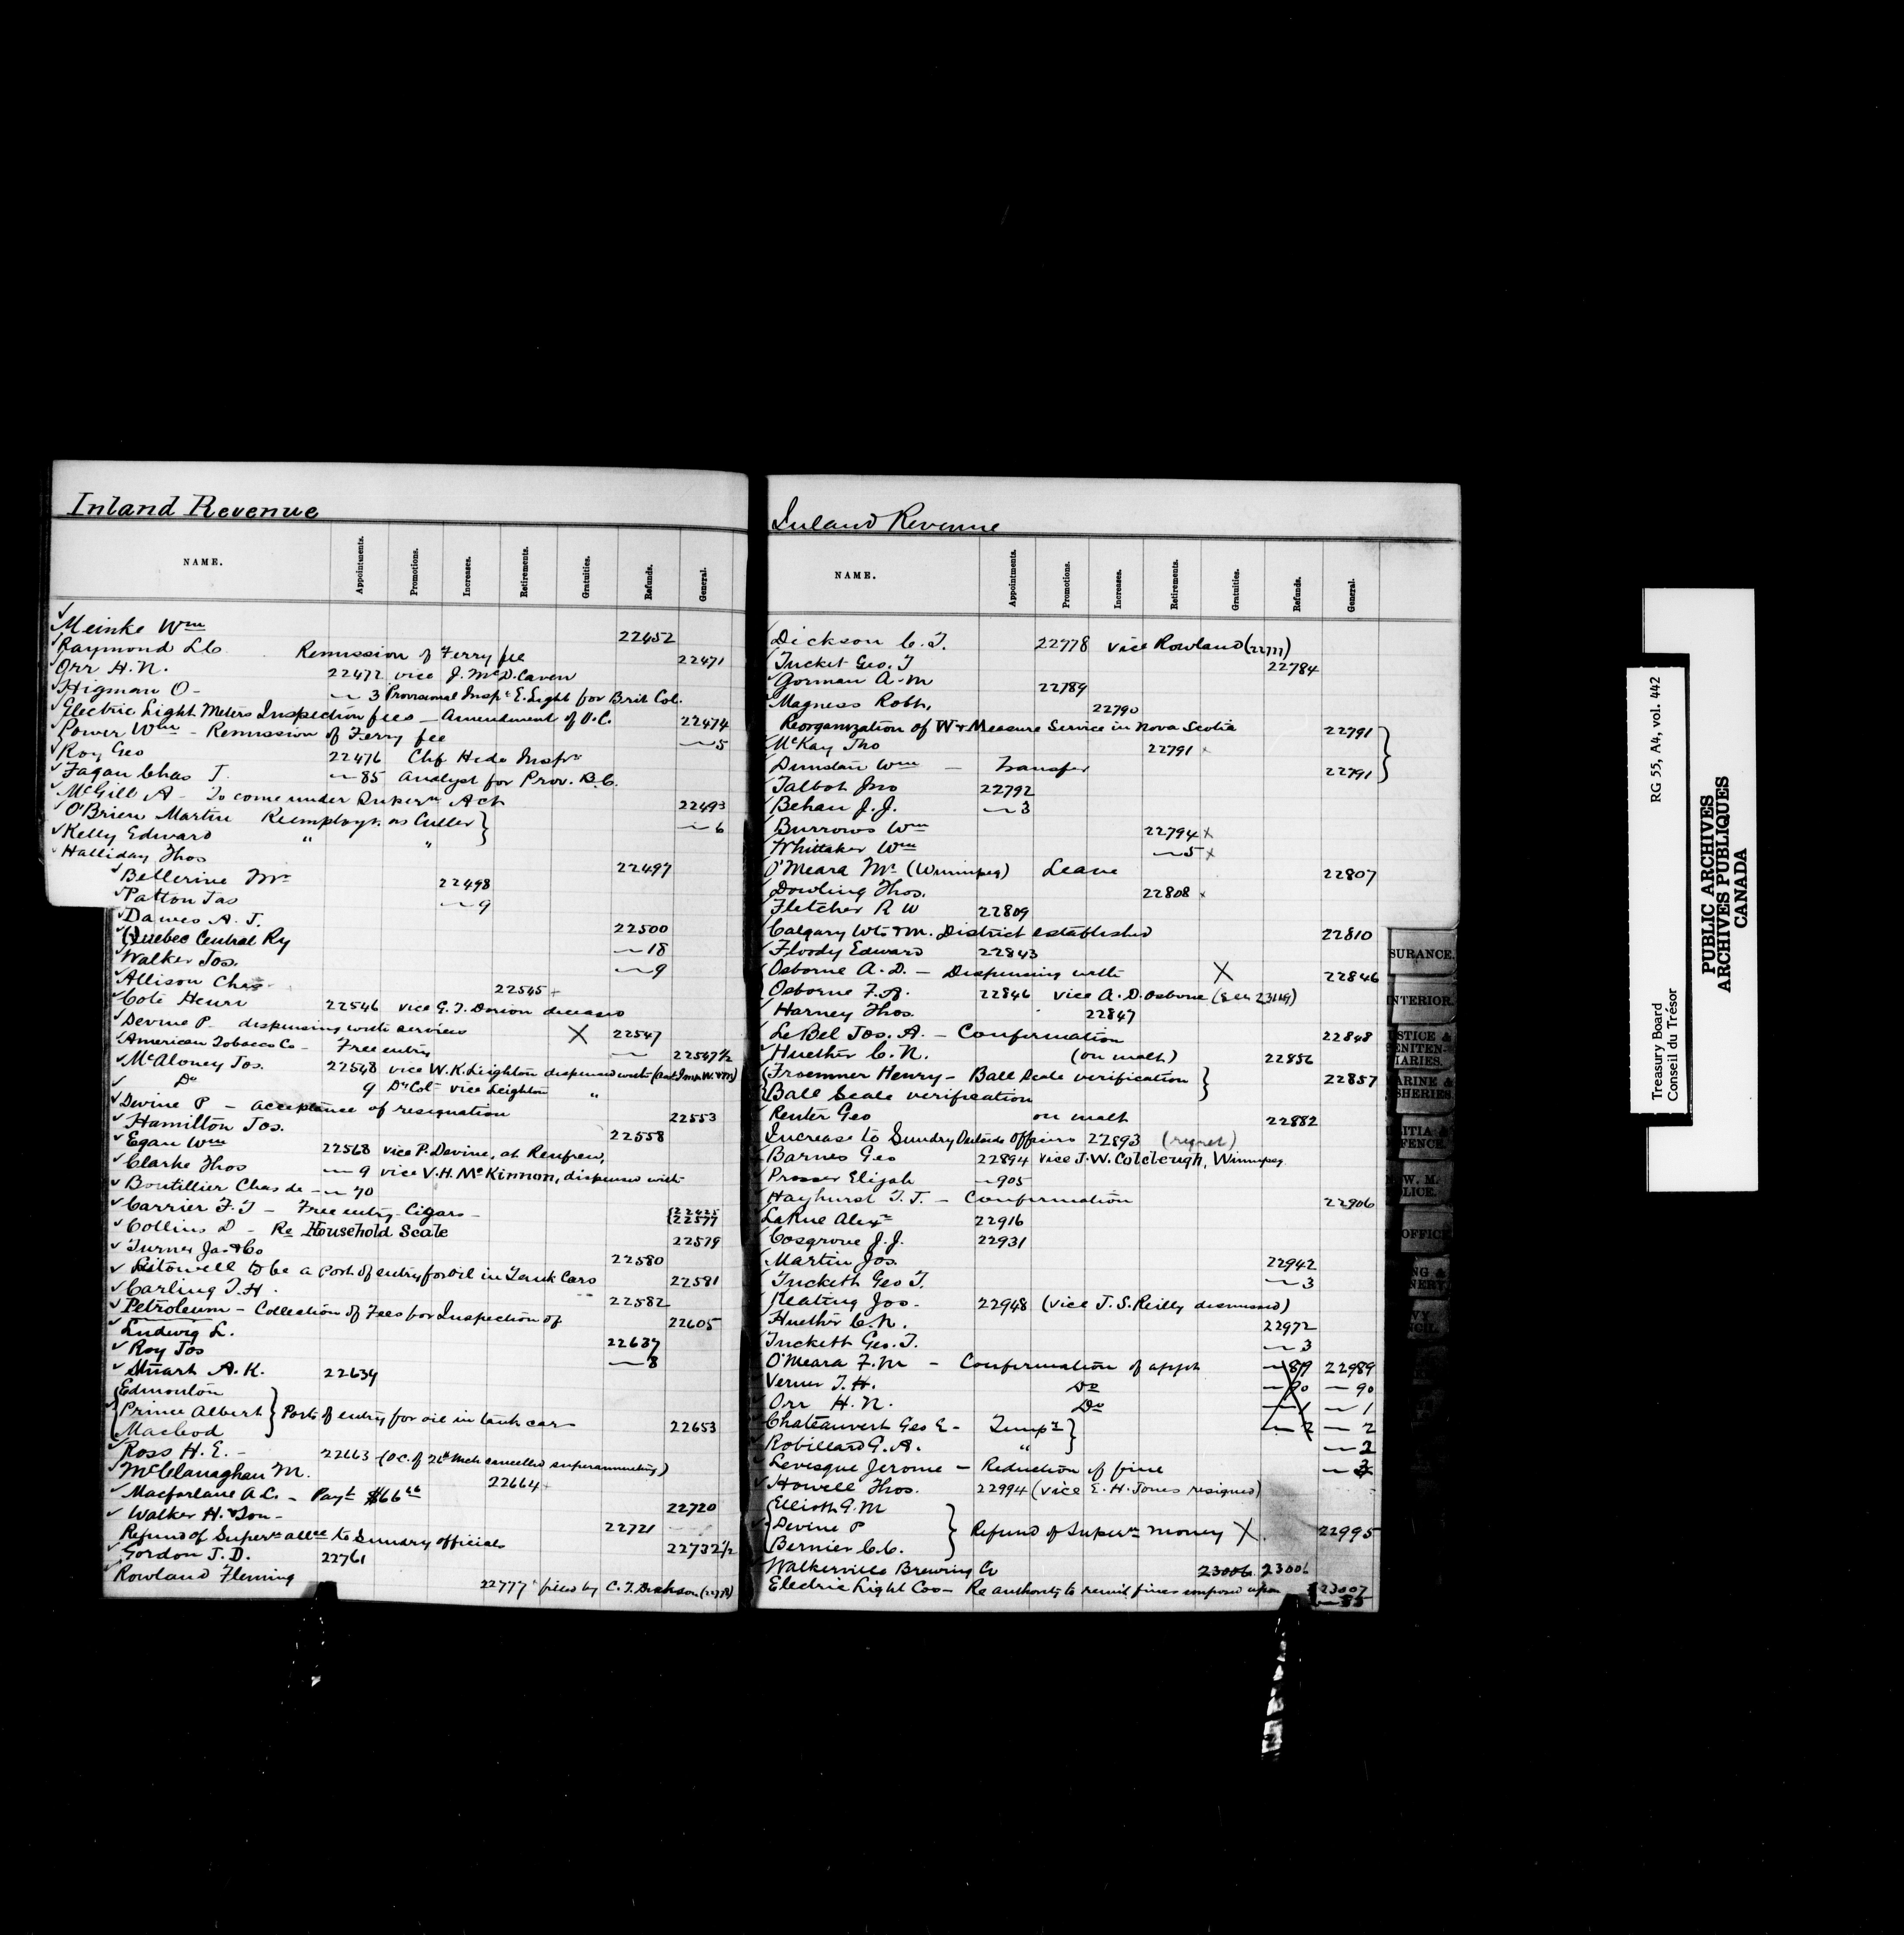 Inland Revenue
NAME. Appointments. Promotions. Increases. Retirements. Gratuities. Refunds. General.
Meinke Wm 22452
Raymond L C Remission of Ferry fee 22471
Orr H. N. 22472 vice J. McD. Caven
Higman O - 3 Provisional Inspr E. Light for Brit Col.
Electric Light Meters Inspection fees - Amendment of O.C. 22474
Power Wm - Remission of Ferry fee 5
Roy Geo 22476 Chf Hide Inspr
Fagan Chas J. 85 Analyst for Prov. B.C.
McGill A - To come under Super'n Act 22493
O'Brien Martin Reemployt. as Culler } 6
Kelly Edward " " }
Halliday Thos 22497
Bellerive Mr 22498
Patton Jas 9
Dawes A. J. 22500
Quebec Central Ry 18
Walker Jos. 9
Allison Chas 22545 +
Coté Henri 22546 vice G. J. Dorion deceased
Devine P. dispensing with services X 22547
American Tobacco Co - Free entry 22547 1/2
McAloney Jos. 22548 vice W. K. Leighton dispensed with (Asst Insp W. & M)
Do 9 Dy Col vice Leighton "
Devine P - acceptance of resignation 22553
Hamilton Jos. 22558
Egan Wm 22568 vice P. Devine, at Renfrew,
Clarke Thos 9 vice V. H. McKinnon, dispensed with
Boutillier Chas de 70
Carrier F. J - Free entry Cigars - { 22425 22577
Collins D - Re Household Scale 22579
Turner Ja. & Co 22580
Listowell to be a Port of entry for oil in Tank Cars 22581
Carling T. H. 22582
Petroleum - Collection of Fees for Inspection of 22605
Ludwig L. 22637
Roy Jos 8
Stuart A. K. 22634
Edmonton
Prince Albert } Ports of entry for oil in tank cars 22653
Macleod
Ross H. E. - 22663 (O.C. of 26th Mch cancelled superannuating)
McClanaghan M. 22664 +
Macfarlane A. C. - Payt $66 66 22720
Walker H. & Son - 22721
Refund of Super'n allce to Sundry officials 22732 1/2
Gordon J. D. 22761
Rowland Fleming 22777 filled by C. T. Dickson (22778)
Inland Revenue
NAME. Appointments. Promotions. Increases. Retirements. Gratuities. Refunds. General.
Dickson C. T. 22778 vice Rowland (22777)
Tucket Geo. T 22784
Gorman A. M 22789
Magness Robt. 22790
Reorganization of W & Measure Service in Nova Scotia 22791 }
McKay Tho 22791 x
Dunstan Wm - Transfer 22791 }
Talbot Jno 22792
Behan J. J. 3
Burrows Wm 22794 x
Whittaker Wm 5 x
O'Meara Mr (Winnipeg) Leave 22807
Dowling Thos. 22808 x
Fletcher R W 22809
Calgary Wts & M. District established 22810
Floody Edward 22843
Osborne A. D. - Dispensing with X 22846
Osborne F. A. 22846 vice A. D. Osborne (see 23149)
Harney Thos. 22847
LeBel Jos. A. - Confirmation 22848
Huether C. N. (on malt) 22856
Froemner Henry - Ball Scale verification } 22857
Ball Scale verification
Renter Geo on malt 22882
Increase to Sundry Outside Officers 22893 (regret)
Barnes Geo 22894 vice J. W. Colcleugh, Winnipeg
Prosser Elijah 905
Hayhurst T. T. - Confirmation 22906
LaRue Alexr 22916
Cosgrove J. J. 22931
Martin Jos. 22942
Tuckett Geo T. 3
Keating Jos. 22948 (vice J. S. Reilly dismissed)
Huether C. N. 22972
Tuckett Geo. T. 3
O'Meara F. M - Confirmation of appt 89 22989
Verner T. H. Do 90 90
Orr H. N. Do 1 1
Chateauvert Geo E - Tempy } 2 2
Robillard G. A. " } 2
Levesque Jerome - Reduction of fine 3
Howell Thos. 22994 (vice E. H. Jones resigned)
Elliott G. M
Devine P } Refund of Super'n money X 22995
Bernier C. C.
Walkerville Brewing Co 23006 23006
Electric Light Cos - Re authority to remit fines imposed upon { 23007 55
SURANCE.
INTERIOR.
STICE & ENITEN- IARIES.
ARINE & SHERIES
ITIA & FENCE.
W. M. LICE.
OFFICE
NG & NERY
VY
CIL.
RG 55, A4, vol. 442
Treasury Board
Conseil du Trésor
PUBLIC ARCHIVES
ARCHIVES PUBLIQUES
CANADA